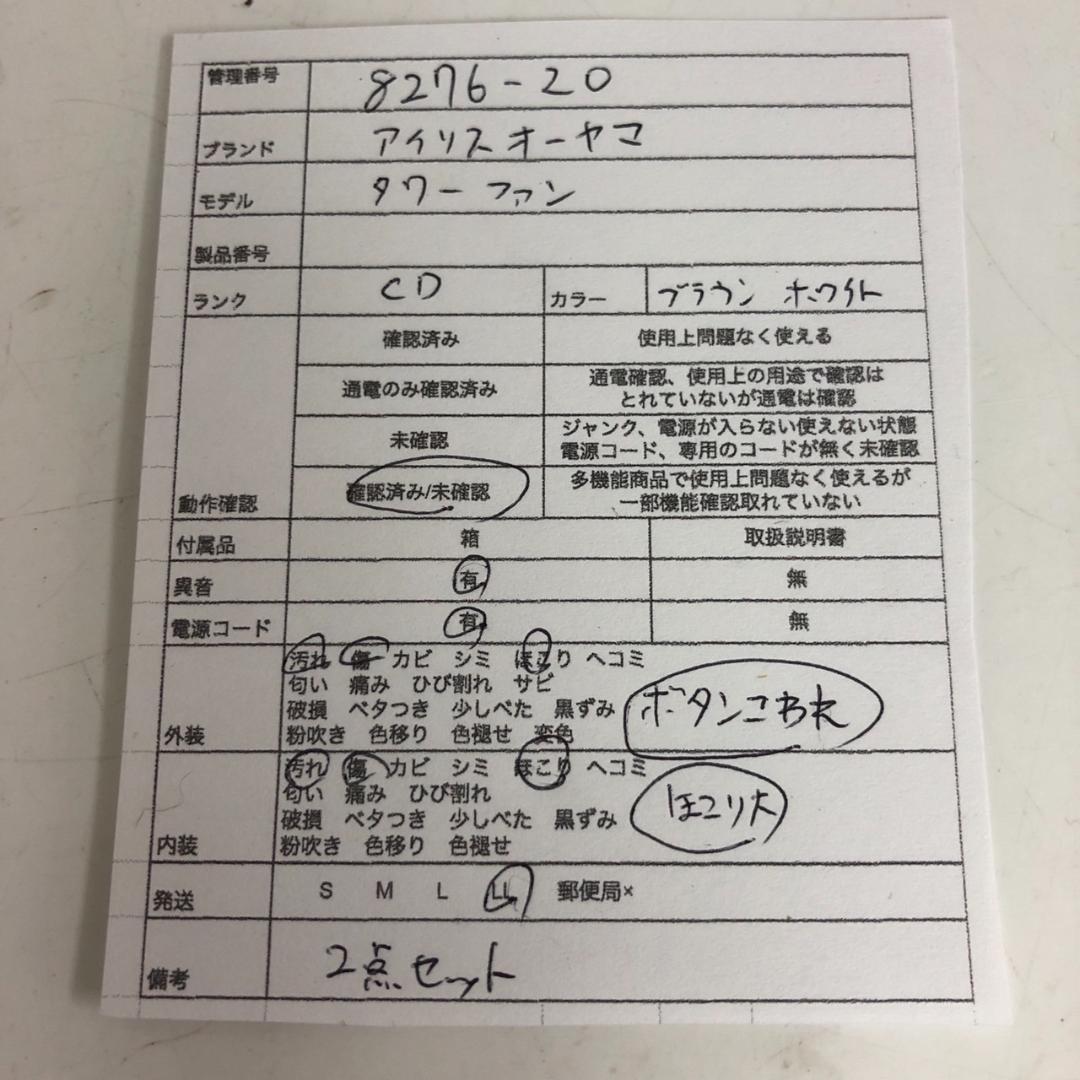 管理番号 8276-20
ブランド アイリスオーヤマ
モデル タワーファン
製品番号
ランク CD カラー ブラウン ホワイト
確認済み 使用上問題なく使える
通電のみ確認済み 通電確認、使用上の用途で確認は
とれていないが通電は確認
未確認 ジャンク、電源が入らない使えない状態
電源コード、専用のコードが無く未確認
動作確認 確認済み/未確認 多機能商品で使用上問題なく使えるが
一部機能確認取れていない
付属品 箱 取扱説明書
異音 有 無
電源コード 有 無
汚れ 傷 カビ シミ ほこり ヘコミ
匂い 痛み ひび割れ サビ
破損 ベタつき 少しべた 黒ずみ ボタンこわれ
外装 粉吹き 色移り 色褪せ 変色
汚れ 傷 カビ シミ ほこり ヘコミ
匂い 痛み ひび割れ ほこり大
破損 ベタつき 少しべた 黒ずみ
内装 粉吹き 色移り 色褪せ
発送 S M L LL 郵便局×
備考 2点セット